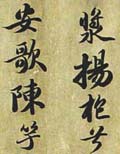 漿揚枹兮
安歌陳竽